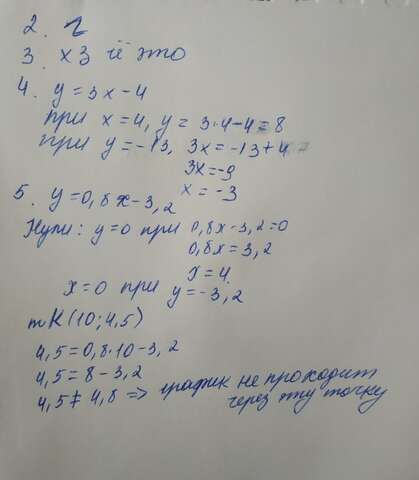 2. г
3. х3 чё это
4. y = 3x - 4
при x = 4, y = 3·4-4 = 8
при y = -13, 3x = -13 + 4
3x = -9
x = -3
5. y = 0,8x - 3,2
Нули: y = 0 при 0,8x - 3,2 = 0
0,8x = 3,2
x = 4
x = 0 при y = -3,2
т К (10; 4,5)
4,5 = 0,8·10 - 3,2
4,5 = 8 - 3,2
4,5 ≠ 4,8 => график не проходит
через эту точку